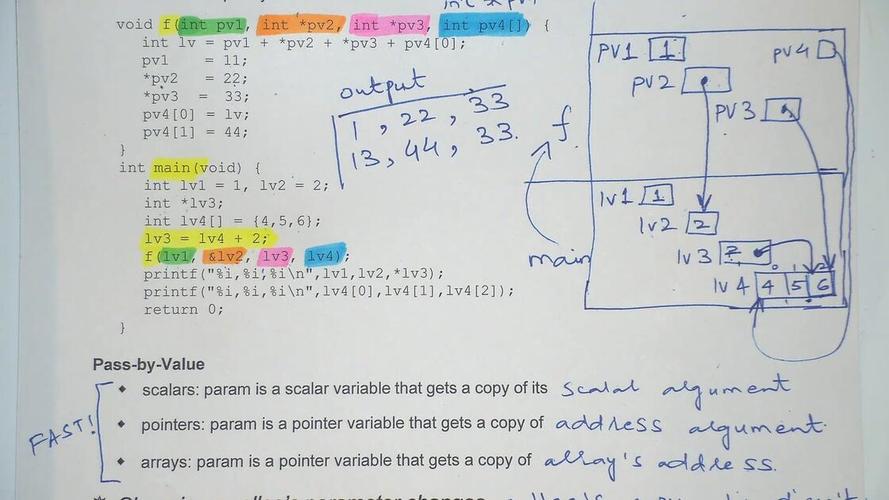 void f(int pv1, int *pv2, int *pv3, int pv4[]) {
int lv = pv1 + *pv2 + *pv3 + pv4[0];
pv1 = 11;
*pv2 = 22;
*pv3 = 33;
pv4[0] = lv;
pv4[1] = 44;
}
int main(void) {
int lv1 = 1, lv2 = 2;
int *lv3;
int lv4[] = {4,5,6};
lv3 = lv4 + 2;
f(lv1, &lv2, lv3, lv4);
printf("%i,%i,%i\n",lv1,lv2,*lv3);
printf("%i,%i,%i\n",lv4[0],lv4[1],lv4[2]);
return 0;
}
output
1, 22, 33
13, 44, 33.
f
main
PV1 1
PV4
PV2
PV3
lv1 1
lv2 2
lv3 ?
0 1 2
lv4 4 5 6
Pass-by-Value
FAST!
• scalars: param is a scalar variable that gets a copy of its scalar argument
• pointers: param is a pointer variable that gets a copy of address argument.
• arrays: param is a pointer variable that gets a copy of array's address.